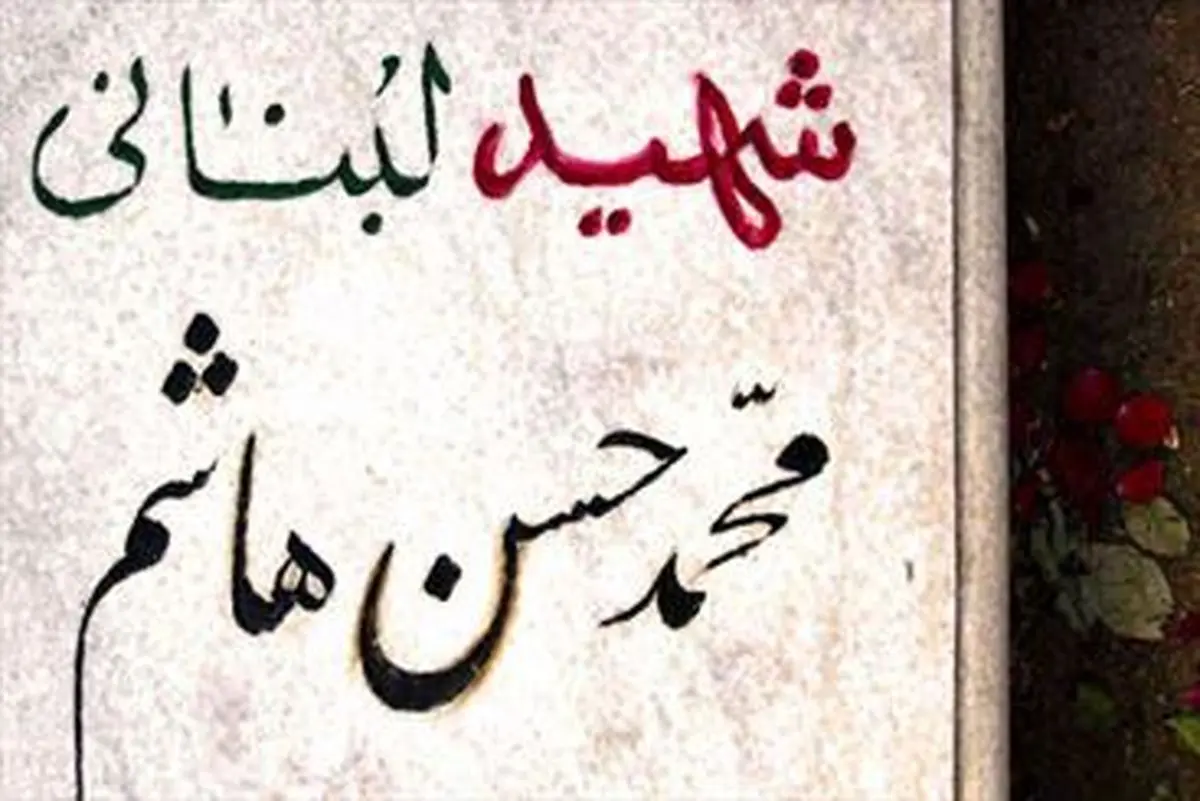 شهید لُبنانی
محمّد حسن هاشم